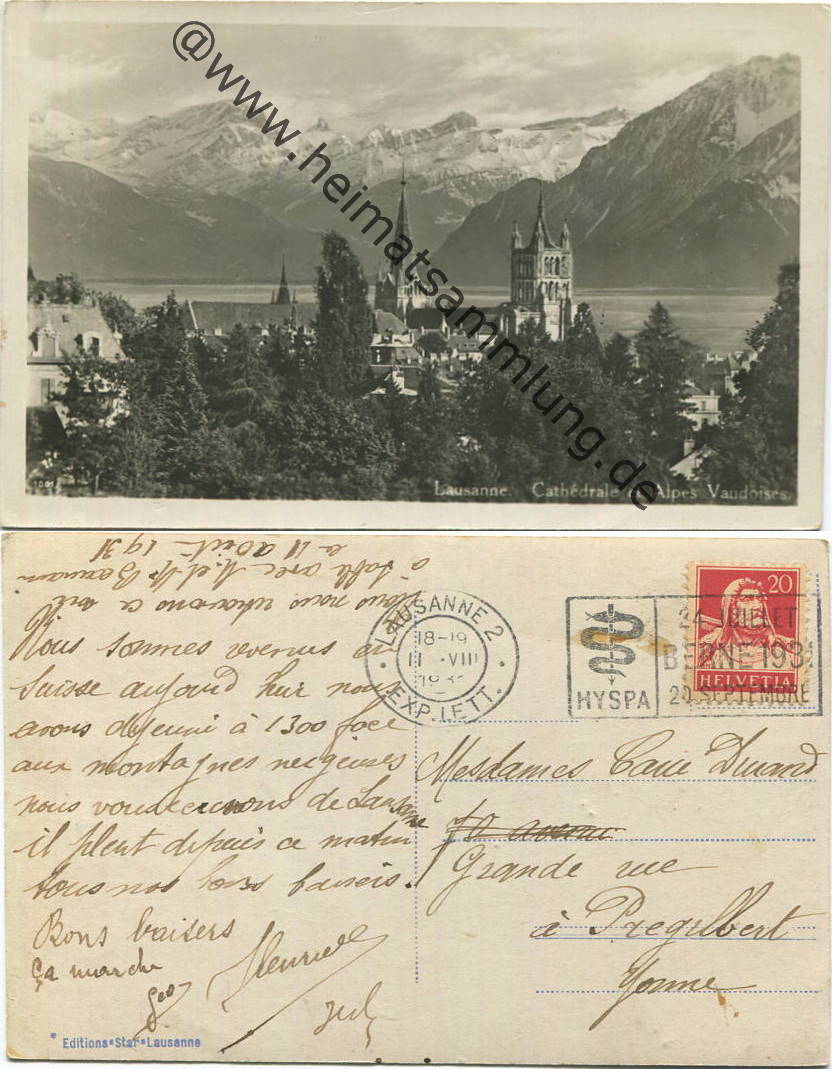 @www.heimatsammlung.de
Lausanne. Cathédrale et Alpes Vaudoises.
à table avec M. et
le 11 août 1931
Nous nous retrouvons ce soir
LAUSANNE 2
18-19
11.VIII
EXP. LETT.
HYSPA
24 JUILLET
BERNE 1931
20 SEPTEMBRE
20
HELVETIA
Nous sommes revenus en
Suisse aujourd hui nous
avons dejeuné à 1300 face
aux montagnes neigeuses
nous vous de Lausanne
il pleut depuis ce matin
tous nos bons baisers.
Bons baisers
Ça marche
Geo
Editions-Star-Lausanne
Mesdames Durand
Grande rue
à Pregilbert
Yonne